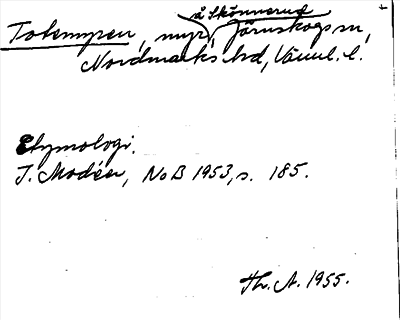 å Skönnerud
Totempen, myr, Järnskogs sn,
Nordmarks hd, Värml. l.
Etymologi.
I. Modéer, NoB 1953, s. 185.
Th. A. 1955.